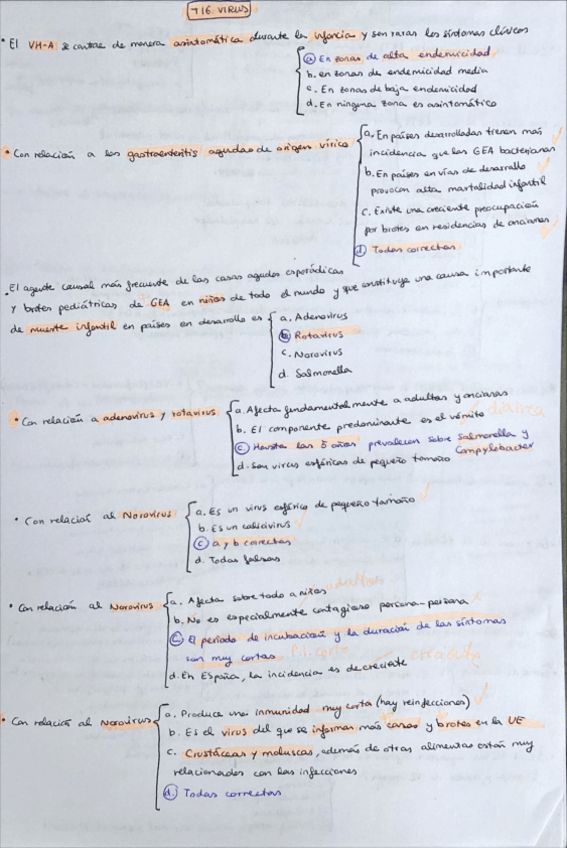 T16. VIRUS
• El VH-A se contrae de manera asintomática durante la infancia y son raros los síntomas clínicos
a) En zonas de alta endemicidad
b. en zonas de endemicidad media
c. En zonas de baja endemicidad
d. En ninguna zona es asintomático
• Con relación a las gastroenteritis agudas de origen vírico
a. En países desarrollados tienen más
incidencia que las GEA bacterianas
b. En países en vías de desarrollo
provocan alta mortalidad infantil
c. Existe una creciente preocupación
por brotes en residencias de ancianos
d) Todas correctas
• El agente causal más frecuente de los casos agudos esporádicos
y brotes pediátricos de GEA en niños de todo el mundo y que constituye una causa importante
de muerte infantil en países en desarrollo es
a. Adenovirus
b) Rotavirus
c. Norovirus
d. Salmonella
• Con relación a adenovirus y rotavirus
a. Afecta fundamentalmente a adultos y ancianos
b. El componente predominante es el vómito diarrea
c) Hasta los 5 años prevalecen sobre Salmonella y
Campylobacter
d. son virus esféricos de pequeño tamaño
• Con relación al Norovirus
a. Es un virus esférico de pequeño tamaño
b. Es un calicivirus
c) a y b correctas
d. Todas falsas
• Con relación al Norovirus
a. Afecta sobre todo a niños adultos
b. No es especialmente contagioso persona-persona
c) El periodo de incubación y la duración de los síntomas
son muy cortos P.I. corto
d. En España, la incidencia es decreciente creciente
• Con relación al Norovirus
a. Produce una inmunidad muy corta (hay reinfecciones)
b. Es el virus del que se informan más casos y brotes en la UE
c. Crustáceos y moluscos, además de otros alimentos están muy
relacionados con las infecciones
d) Todas correctas